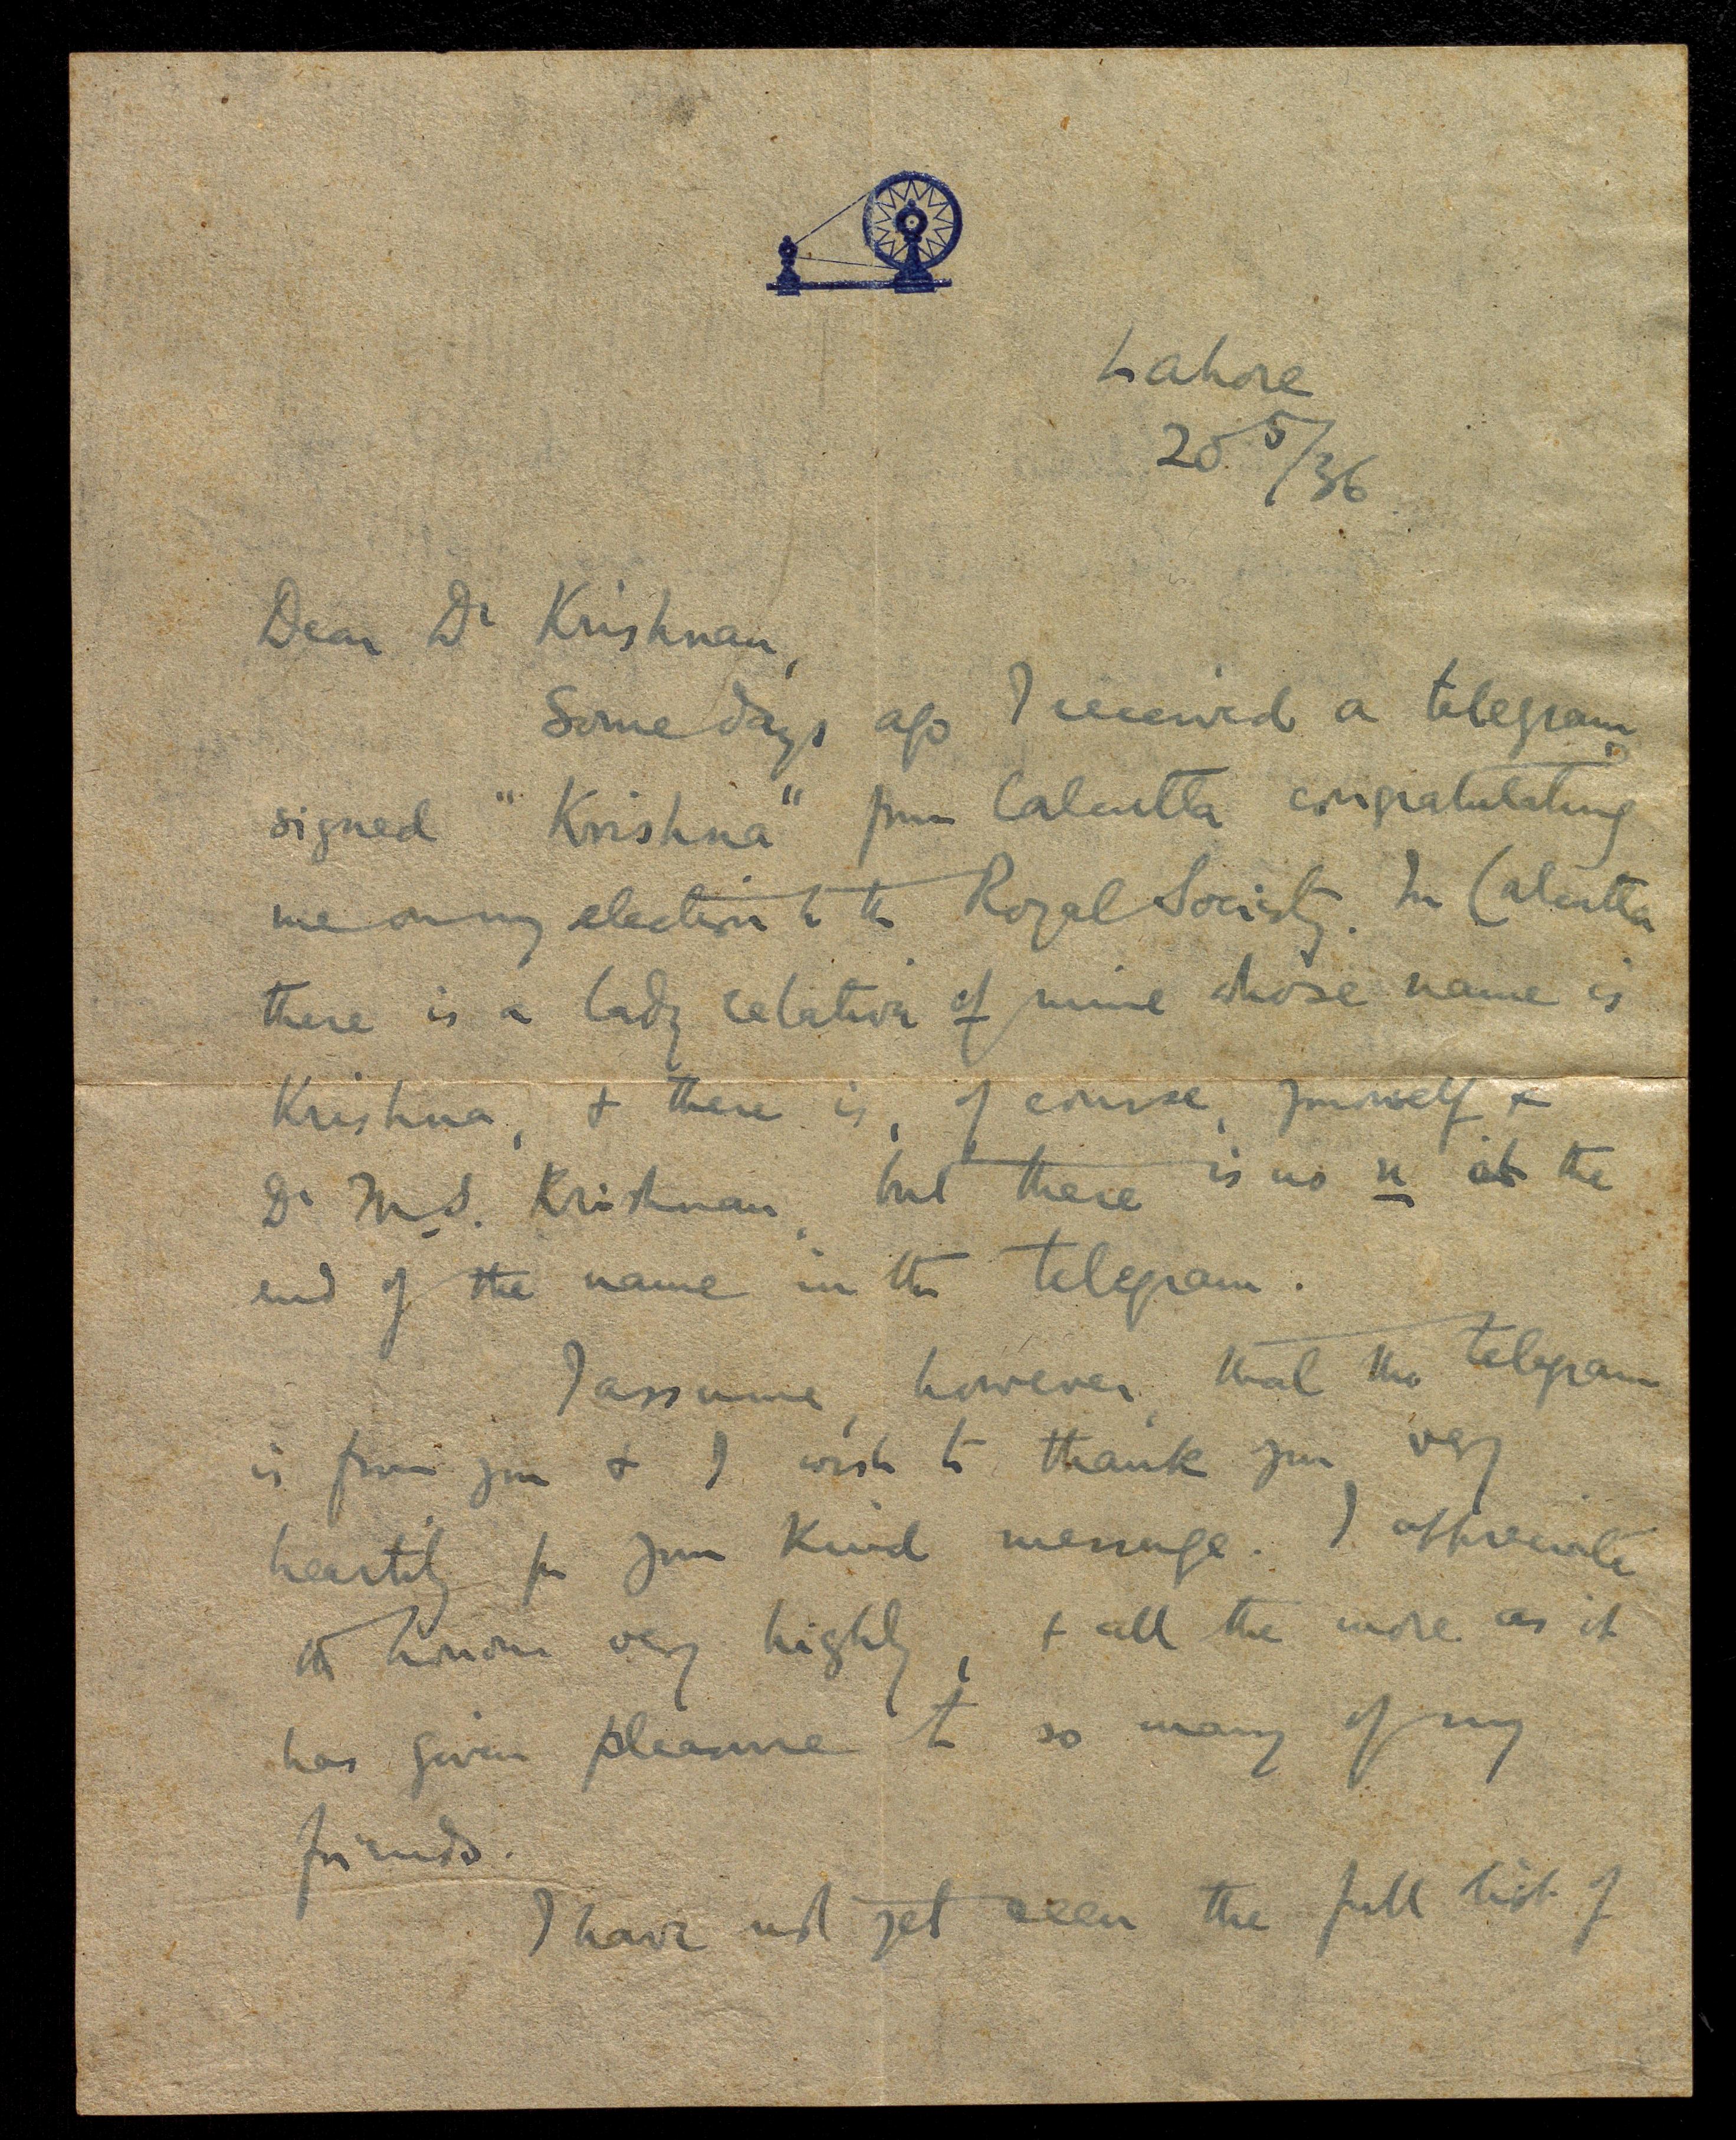 Lahore
20 5/36
Dear Dr Krishnan,
Some days ago I received a telegram,
signed "Krishna" from Calcutta congratulating
me on my election to the Royal Society. In Calcutta
there is a lady relation of mine whose name is
Krishna, & there is, of course, yourself &
Dr M.S. Krishnan, but there is no n at the
end of the name in the telegram.
I assume, however, that the telegram
is from you & I wish to thank you very
heartily for your kind message. I appreciate
the honour very highly, & all the more as it
has given pleasure to so many of my
friends.
I have not yet seen the full list of